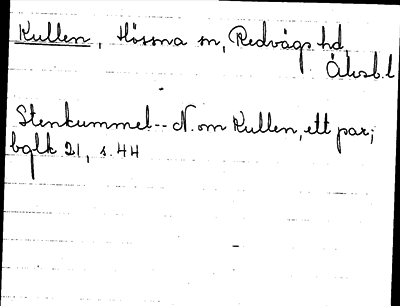 Kullen, Hössna sn, Redvägs hd,
Älvsb.l
Stenkummel -- N. om Kullen, ett par;
bglk 21, s. 44